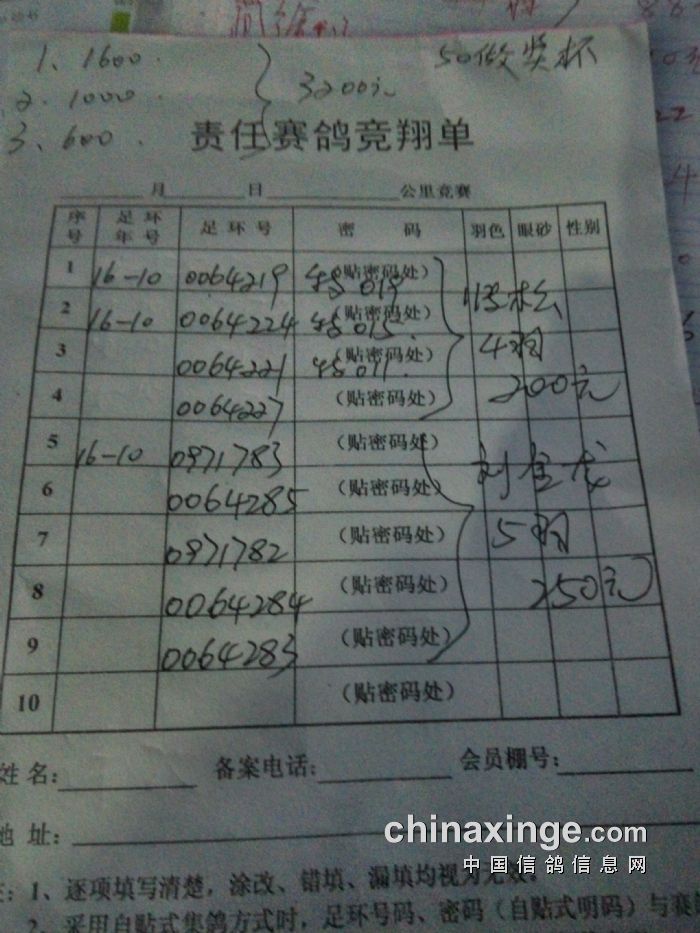 1、1600.
50做奖杯
2、1000.
3200元
3、600.
责任赛鸽竞翔单
月 日 公里竞赛
序号 足环年号 足环号 密码 羽色 眼砂 性别
1 16-10 0064219 45019 (贴密码处)
2 16-10 0064224 45015 (贴密码处)
3 0064221 45011. (贴密码处) 4羽
4 0064227 (贴密码处) 200元
5 16-10 0971783 (贴密码处)
6 0064285 (贴密码处) 刘金龙
7 0971782 (贴密码处) 5羽
8 0064284 (贴密码处) 250元
9 0064283 (贴密码处)
10 (贴密码处)
姓名: 备案电话: 会员棚号:
地址:
chinaxinge.com
中国信鸽信息网
1、逐项填写清楚，涂改、错填、漏填均视为无效.
2、采用自贴式集鸽方式时，足环号码、密码（自贴式明码）与赛